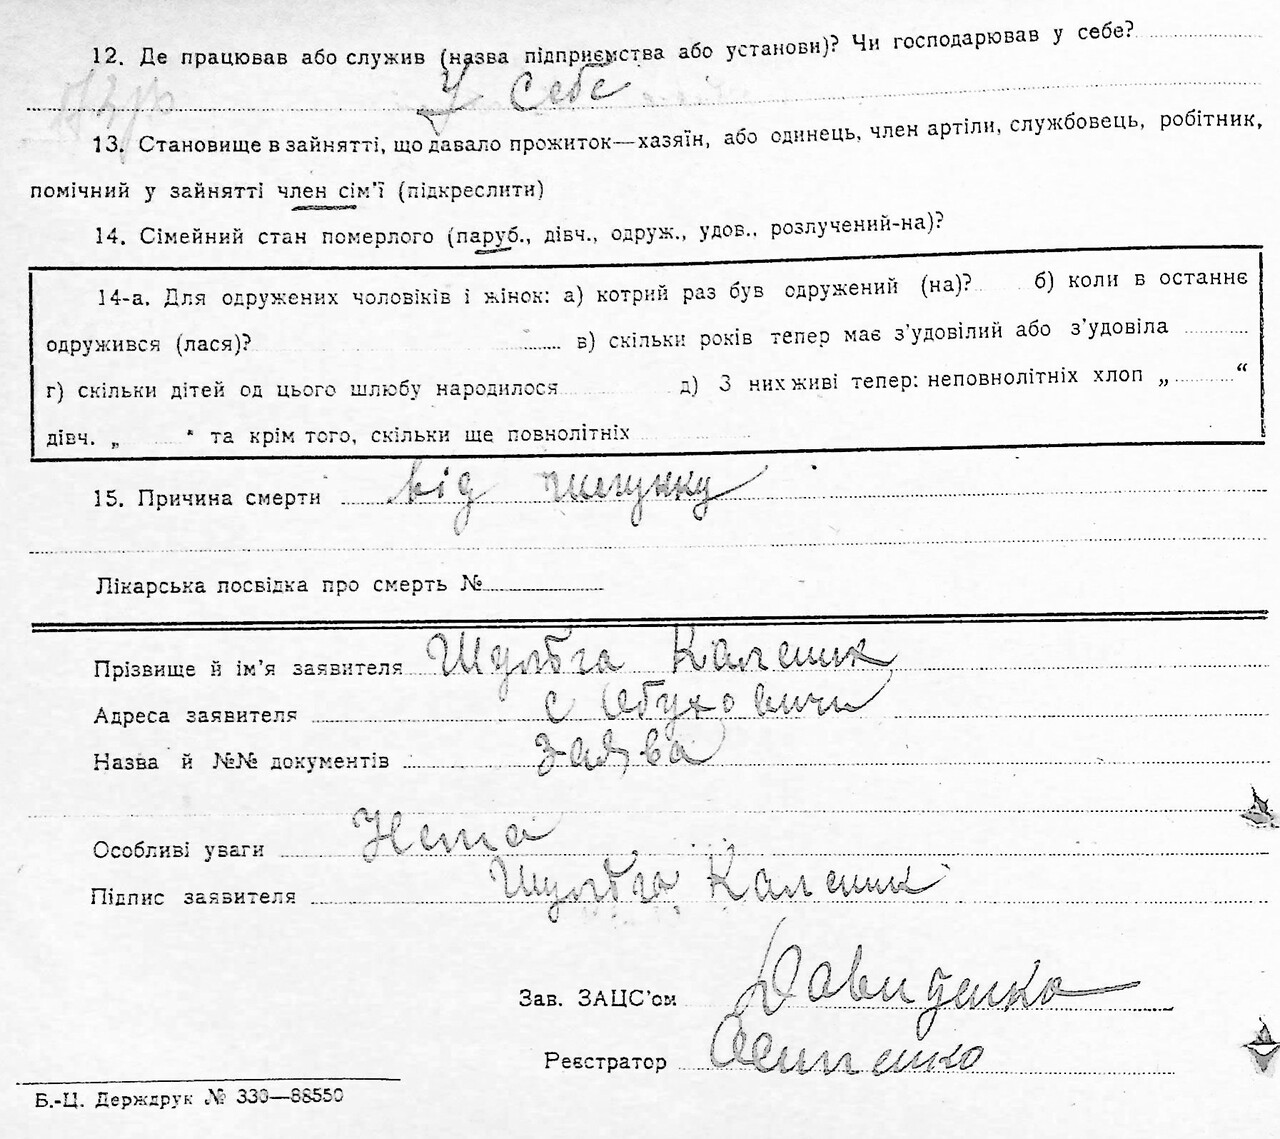 12. Де працював або служив (назва підприємства або установи)? Чи господарював у себе?
У себе
13. Становище в зайнятті, що давало прожиток—хазяїн, або одинець, член артіли, службовець, робітник,
помічний у зайнятті член сім'ї (підкреслити)
14. Сімейний стан померлого (паруб., дівч., одруж., удов., розлучений-на)?
14-а. Для одружених чоловіків і жінок: а) котрий раз був одружений (на)? б) коли в останнє
одружився (лася)? в) скільки років тепер має з'удовілий або з'удовіла
г) скільки дітей од цього шлюбу народилося д) З них живі тепер: неповнолітніх хлоп „ “
дівч. „ “ та крім того, скільки ще повнолітніх
15. Причина смерти від шлунку
Лікарська посвідка про смерть №
Прізвище й ім'я заявителя Шульга Каленик
Адреса заявителя с Обуховичи
Назва й №№ документів Заява
Особливі уваги Нема
Підпис заявителя Шульга Каленик
Зав. ЗАЦС'ом Давиденко
Реєстратор Осипенко
Б.-Ц. Держдрук № 330—88550